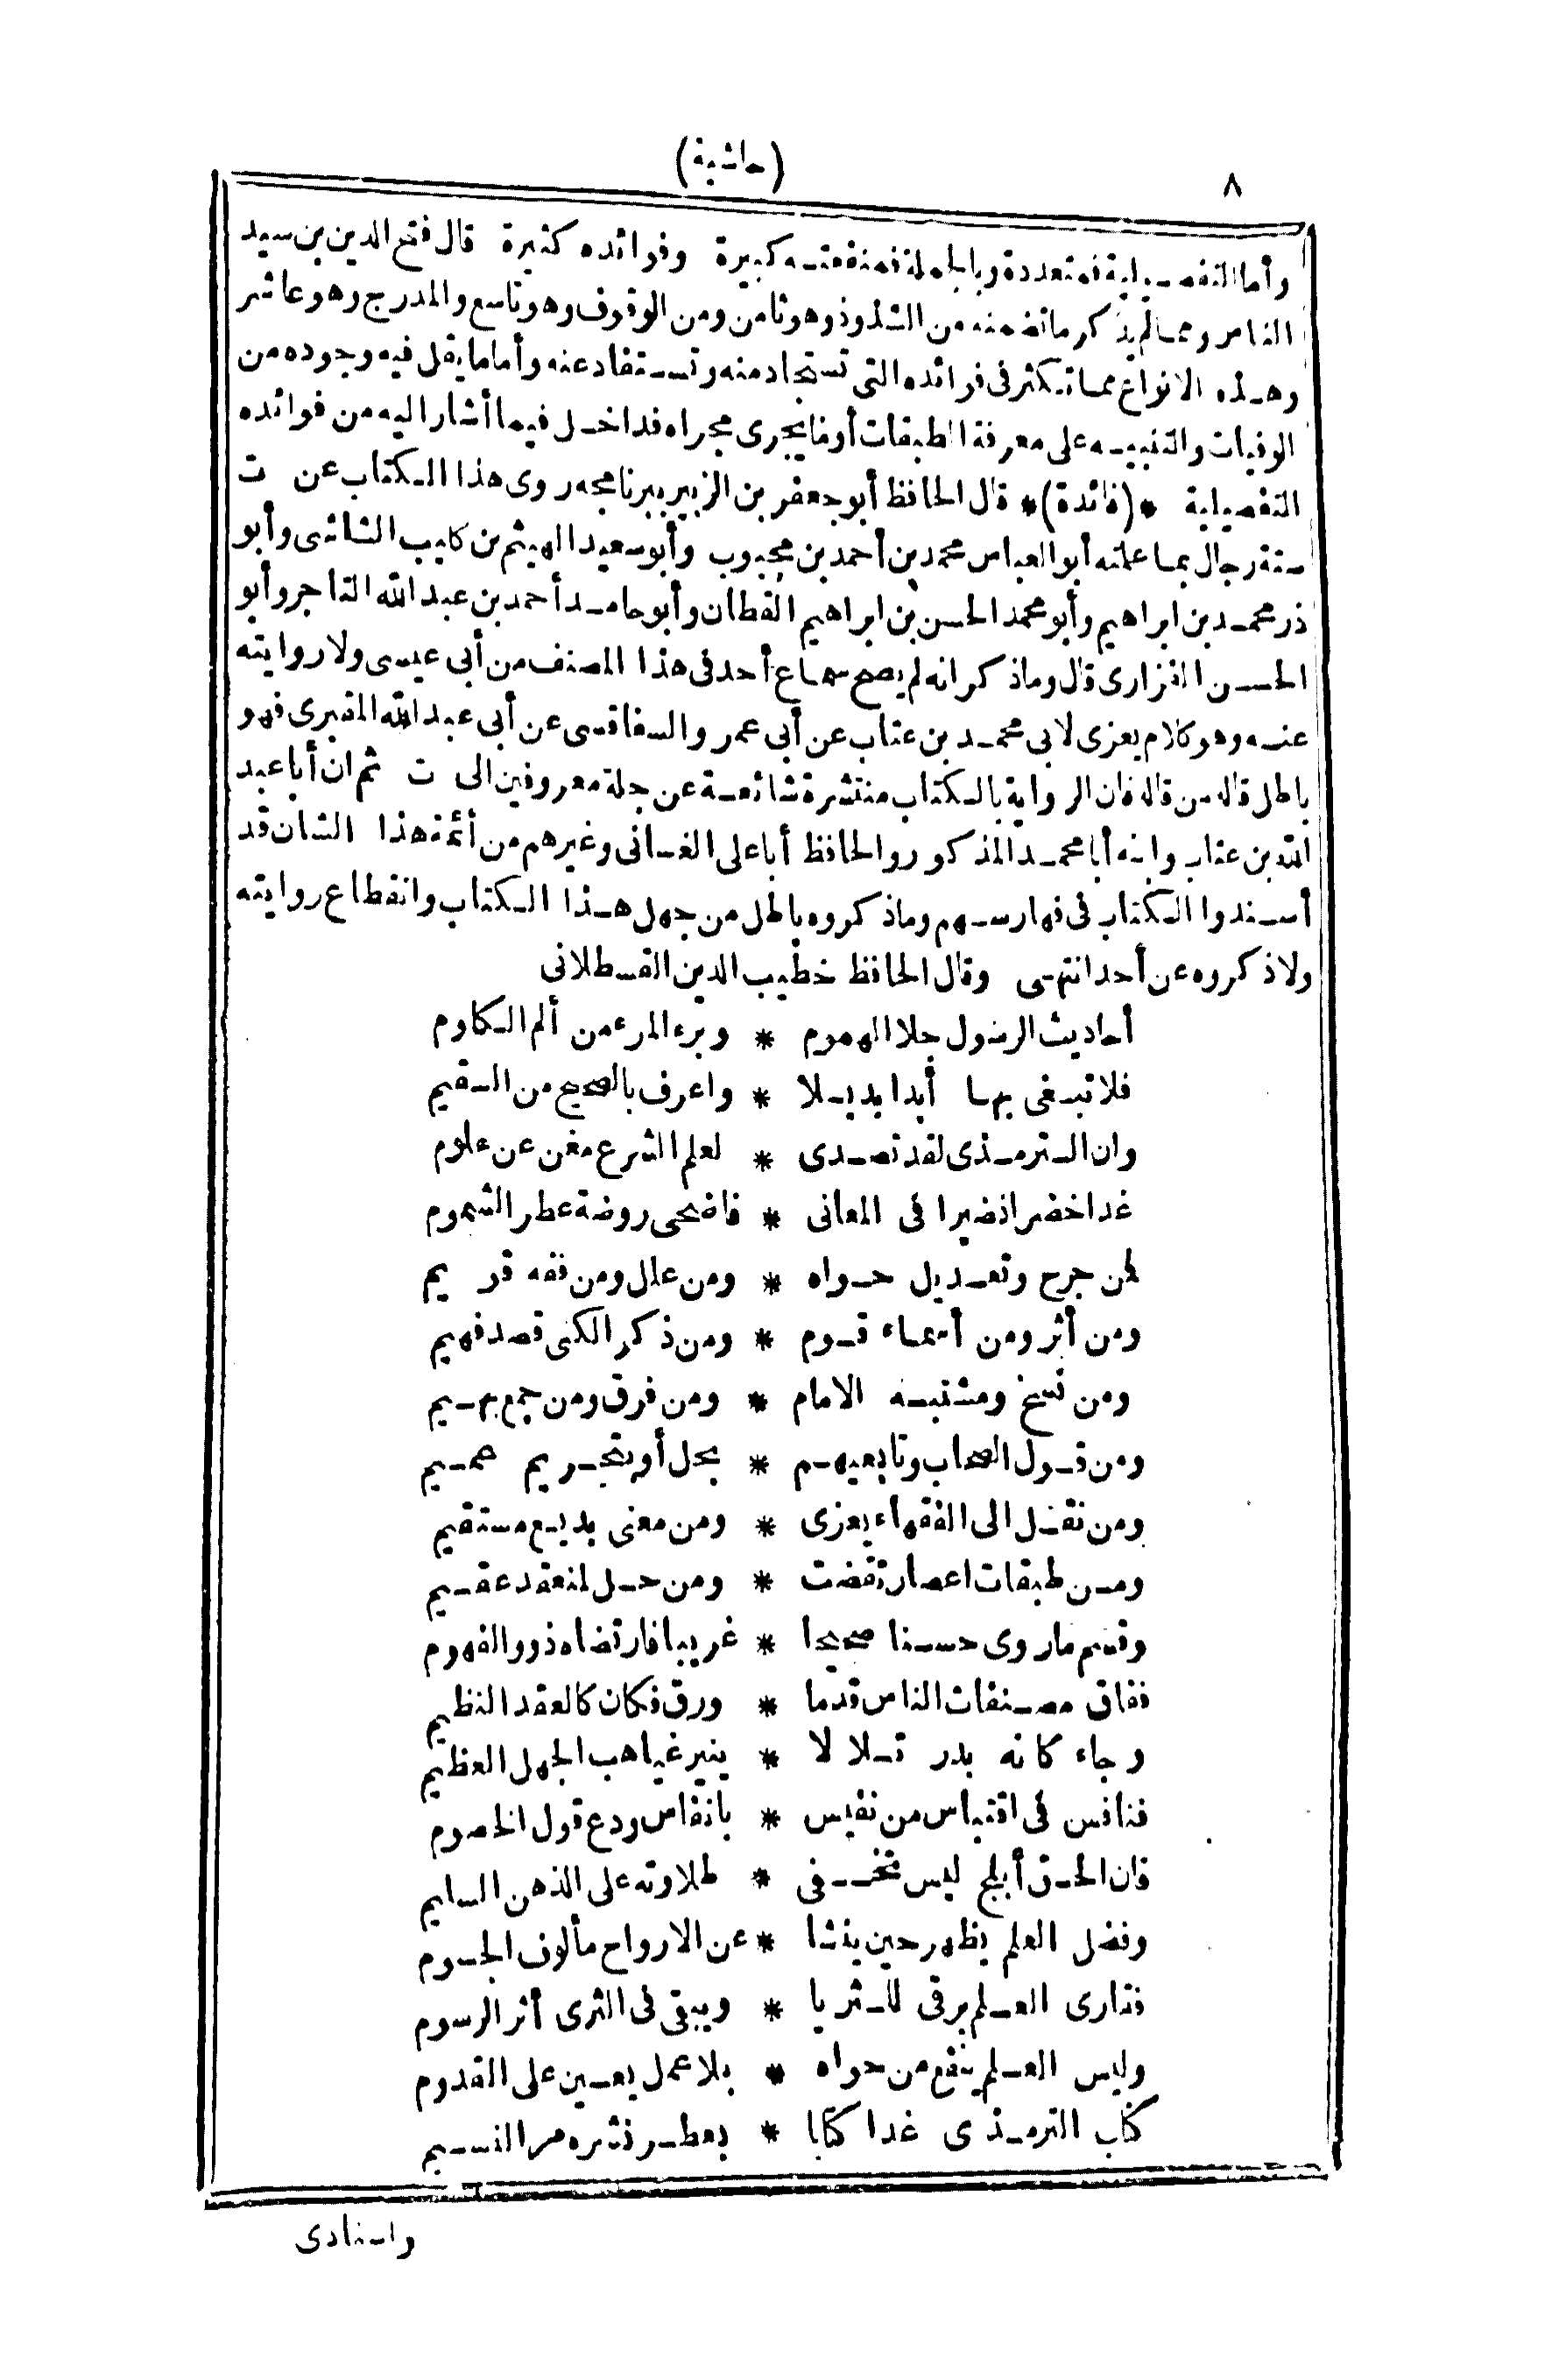 ٨
(حاشية)
وأما التفصيلية فمتعددة وبالجملة فمنفعته كبيرة وفوائده كثيرة قال فتح الدين بن سيد
الناس ومما لم يذكر ما تضمنه من الشذوذ وهو ثامن ومن الوقوف وهو تاسع والمدرج وهو عاشر
وهذه الانواع مما تكثر فى فوائده التى تستجاد منه وتستفاد عنه وأما ما يقل فيه وجوده من
الوفيات والتنبيه على معرفة الطبقات أو ما يجرى مجراه فداخل فيما أشار اليه من فوائده
التفصيلية * (فائدة) * قال الحافظ أبو جعفر بن الزبير ببرنامجه روى هذا الكتاب عن ت
ستة رجال بما علمته أبو العباس محمد بن أحمد بن محبوب وأبو سعيد الهيثم بن كليب الشاشى وأبو
ذر محمد بن ابراهيم وأبو محمد الحسن بن ابراهيم القطان وأبو حامد أحمد بن عبد الله التاجر وأبو
الحسن الفزارى قال وما ذكر انه لم يصح سماع أحد فى هذا المصنف من أبى عيسى ولا روايته
عنه وهو كلام يعزى لابى محمد بن عتاب عن أبى عمر والسفاقسى عن أبى عبد الله الفسرى فهو
باطل قاله من قاله فان الرواية بالكتاب منتشرة شائعة عن جلة معروفين الى ت ثم ان أبا عبد
الله بن عتاب وابنه أبا محمد المذكور والحافظ أبا على الغسانى وغيرهم من أئمة هذا الشان قد
أسندوا الكتاب فى فهارسهم وما ذكروه باطل من جهل هذا الكتاب وانقطاع روايته
ولا ذكروه عن أحد انتهى وقال الحافظ خطيب الدين القسطلانى
أحاديث الرسول جلا الهموم * وبرء المرء من ألم الكلوم
فلا تبغى بها أبدا بديلا * واعرف بالصحيح من السقيم
وان الترمذى لقد تصدى * لعلم الشرع مغن عن علوم
غدا خضرا نضيرا فى المعانى * فاضحى روضة عطر الشموم
فمن جرح وتعديل حواه * ومن علل ومن فقه قويم
ومن أثر ومن أسماء قوم * ومن ذكر الكنى قصد فهيم
ومن نسخ ومشتبه الامام * ومن فرق ومن جمع بهيم
ومن قول الصحاب وتابعيهم * بحل أو بتحريم عميم
ومن نقل الى الفقهاء يعزى * ومن معنى بديع مستقيم
ومن طبقات اعصار تقضت * ومن حل لمنعقد عقيم
وقسم ما روى حسنا صحيحا * غريبا فارتضاه ذوو الفهوم
ففاق مصنفات الناس قدما * ورق فكان كالعقد النظيم
وجاء كانه بدر تلالا * ينير غياهب الجهل العظيم
فنافس فى اقتباس من نفيس * بانفاس ودع قول الخصوم
فان الحق أبلج ليس تخفى * طلاوته على الذهن السليم
وفضل العلم يظهر حين ينشا * عن الارواح مألوف الجسوم
فتارى العلم يرقى للثريا * ويبقى فى الثرى أثر الرسوم
وليس العلم ينفع من حواه * بلا عمل يعين على القدوم
كتاب الترمذى غدا كتابا * يعطر نشره مر النسيم
واسنادى